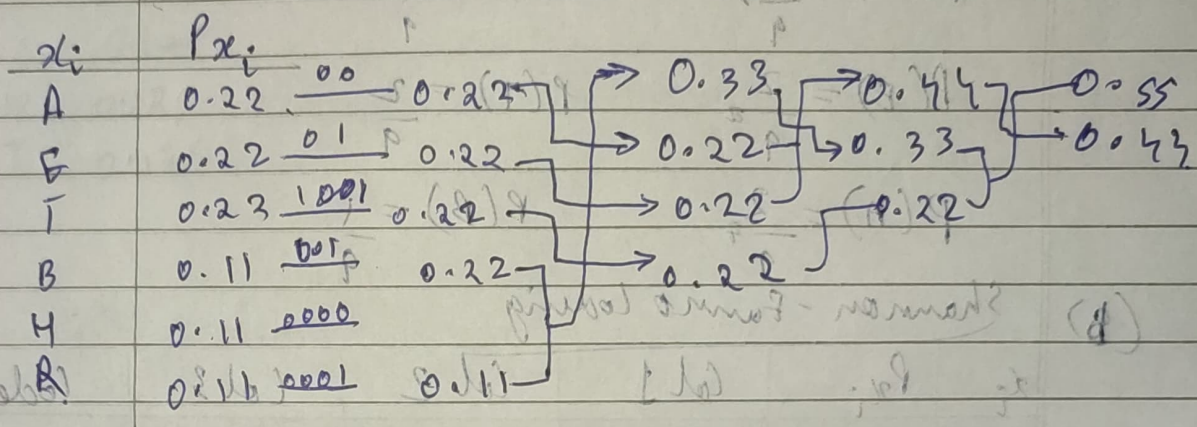 xi Pxi
A 0.22 00 0.22 0.33 0.44 0.55
E 0.22 01 0.22 0.22 0.33 0.43
T 0.23 1001 0.22 0.22 0.22
B 0.11 001 0.22 0.22
H 0.11 0000
R 0.11 0001 0.11